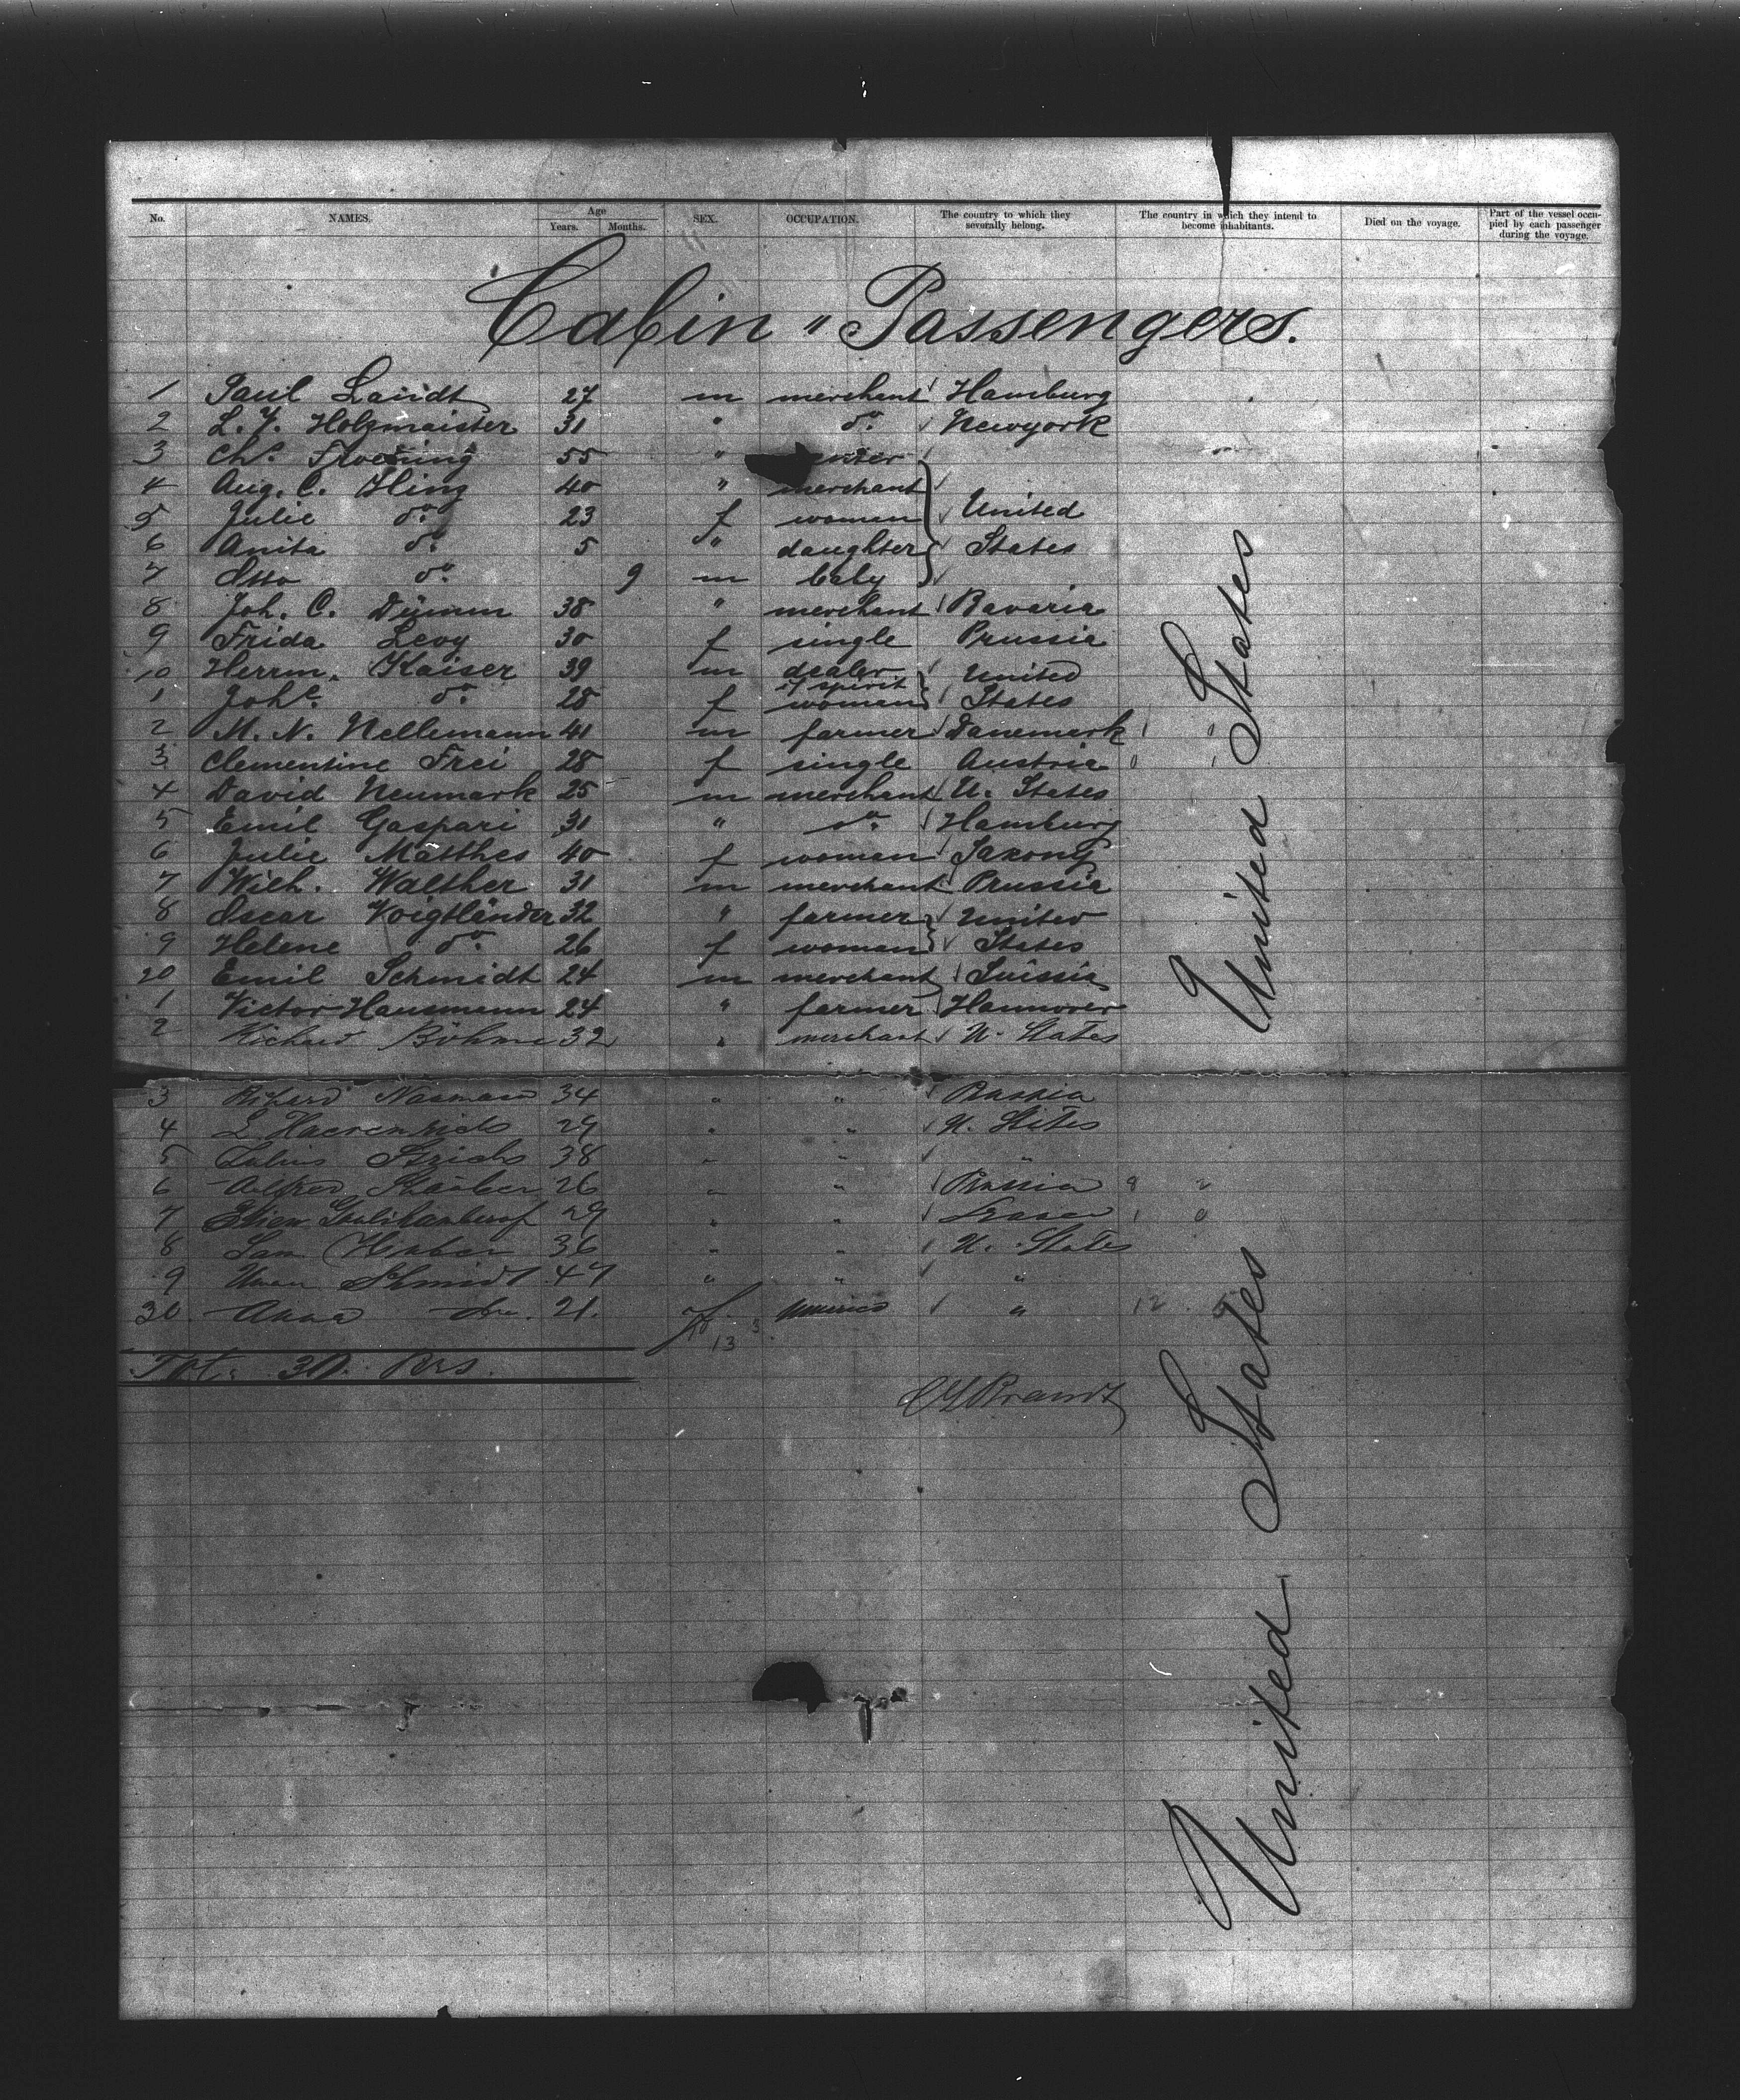 No. NAMES. Age Years. Months. SEX. OCCUPATION. The country to which they severally belong. The country in which they intend to become inhabitants. Died on the voyage. Part of the vessel occupied by each passenger during the voyage.
Cabin " Passengers.
1 Paul 27 m merchant Hamburg
2 L. Y. Holzmaister 31 " do. Newyork
3 Chs. 55 "
4 Aug. C. 40 " merchant
5 Julie do. 23 f women United
6 Anita do. 5 " daughter States
7 Otto do. 9 m baby
8 Joh. C. 38 " merchant Bavaria
9 Frida Levy 30 f single Prussia
10 Herrm. Kaiser 39 m dealer United
of spirit
1 Johe. do. 28 f woman States
2 M. N. Nellemann 41 m farmer Danemark
3 Clementine Frei 28 f single Austria
4 David Neumark 25 m merchant U. States
5 Emil Gaspari 31 " do. Hamburg
6 Julie Matthes 40 f women Saxony
7 Wilh. Walther 31 m merchant Prussia
8 Oscar Voigtländer 32 " farmer United
9 Helene do. 26 f woman States
20 Emil Schmidt 24 m merchant Suissia
1 Victor Hausmann 24 " farmer Hannover
2 Richard Böhme 32 " merchant U. States
3 34 " "
4 29 " " U. States
5 Julius 38 " " "
6 Alfred 26 " "
7 29 " "
8 Sam 36 " " U. States
9 Schmidt 47 " " "
30 Anna do. 21. f "
13
Tot: 30. Pers.
Brandt
United States
United States